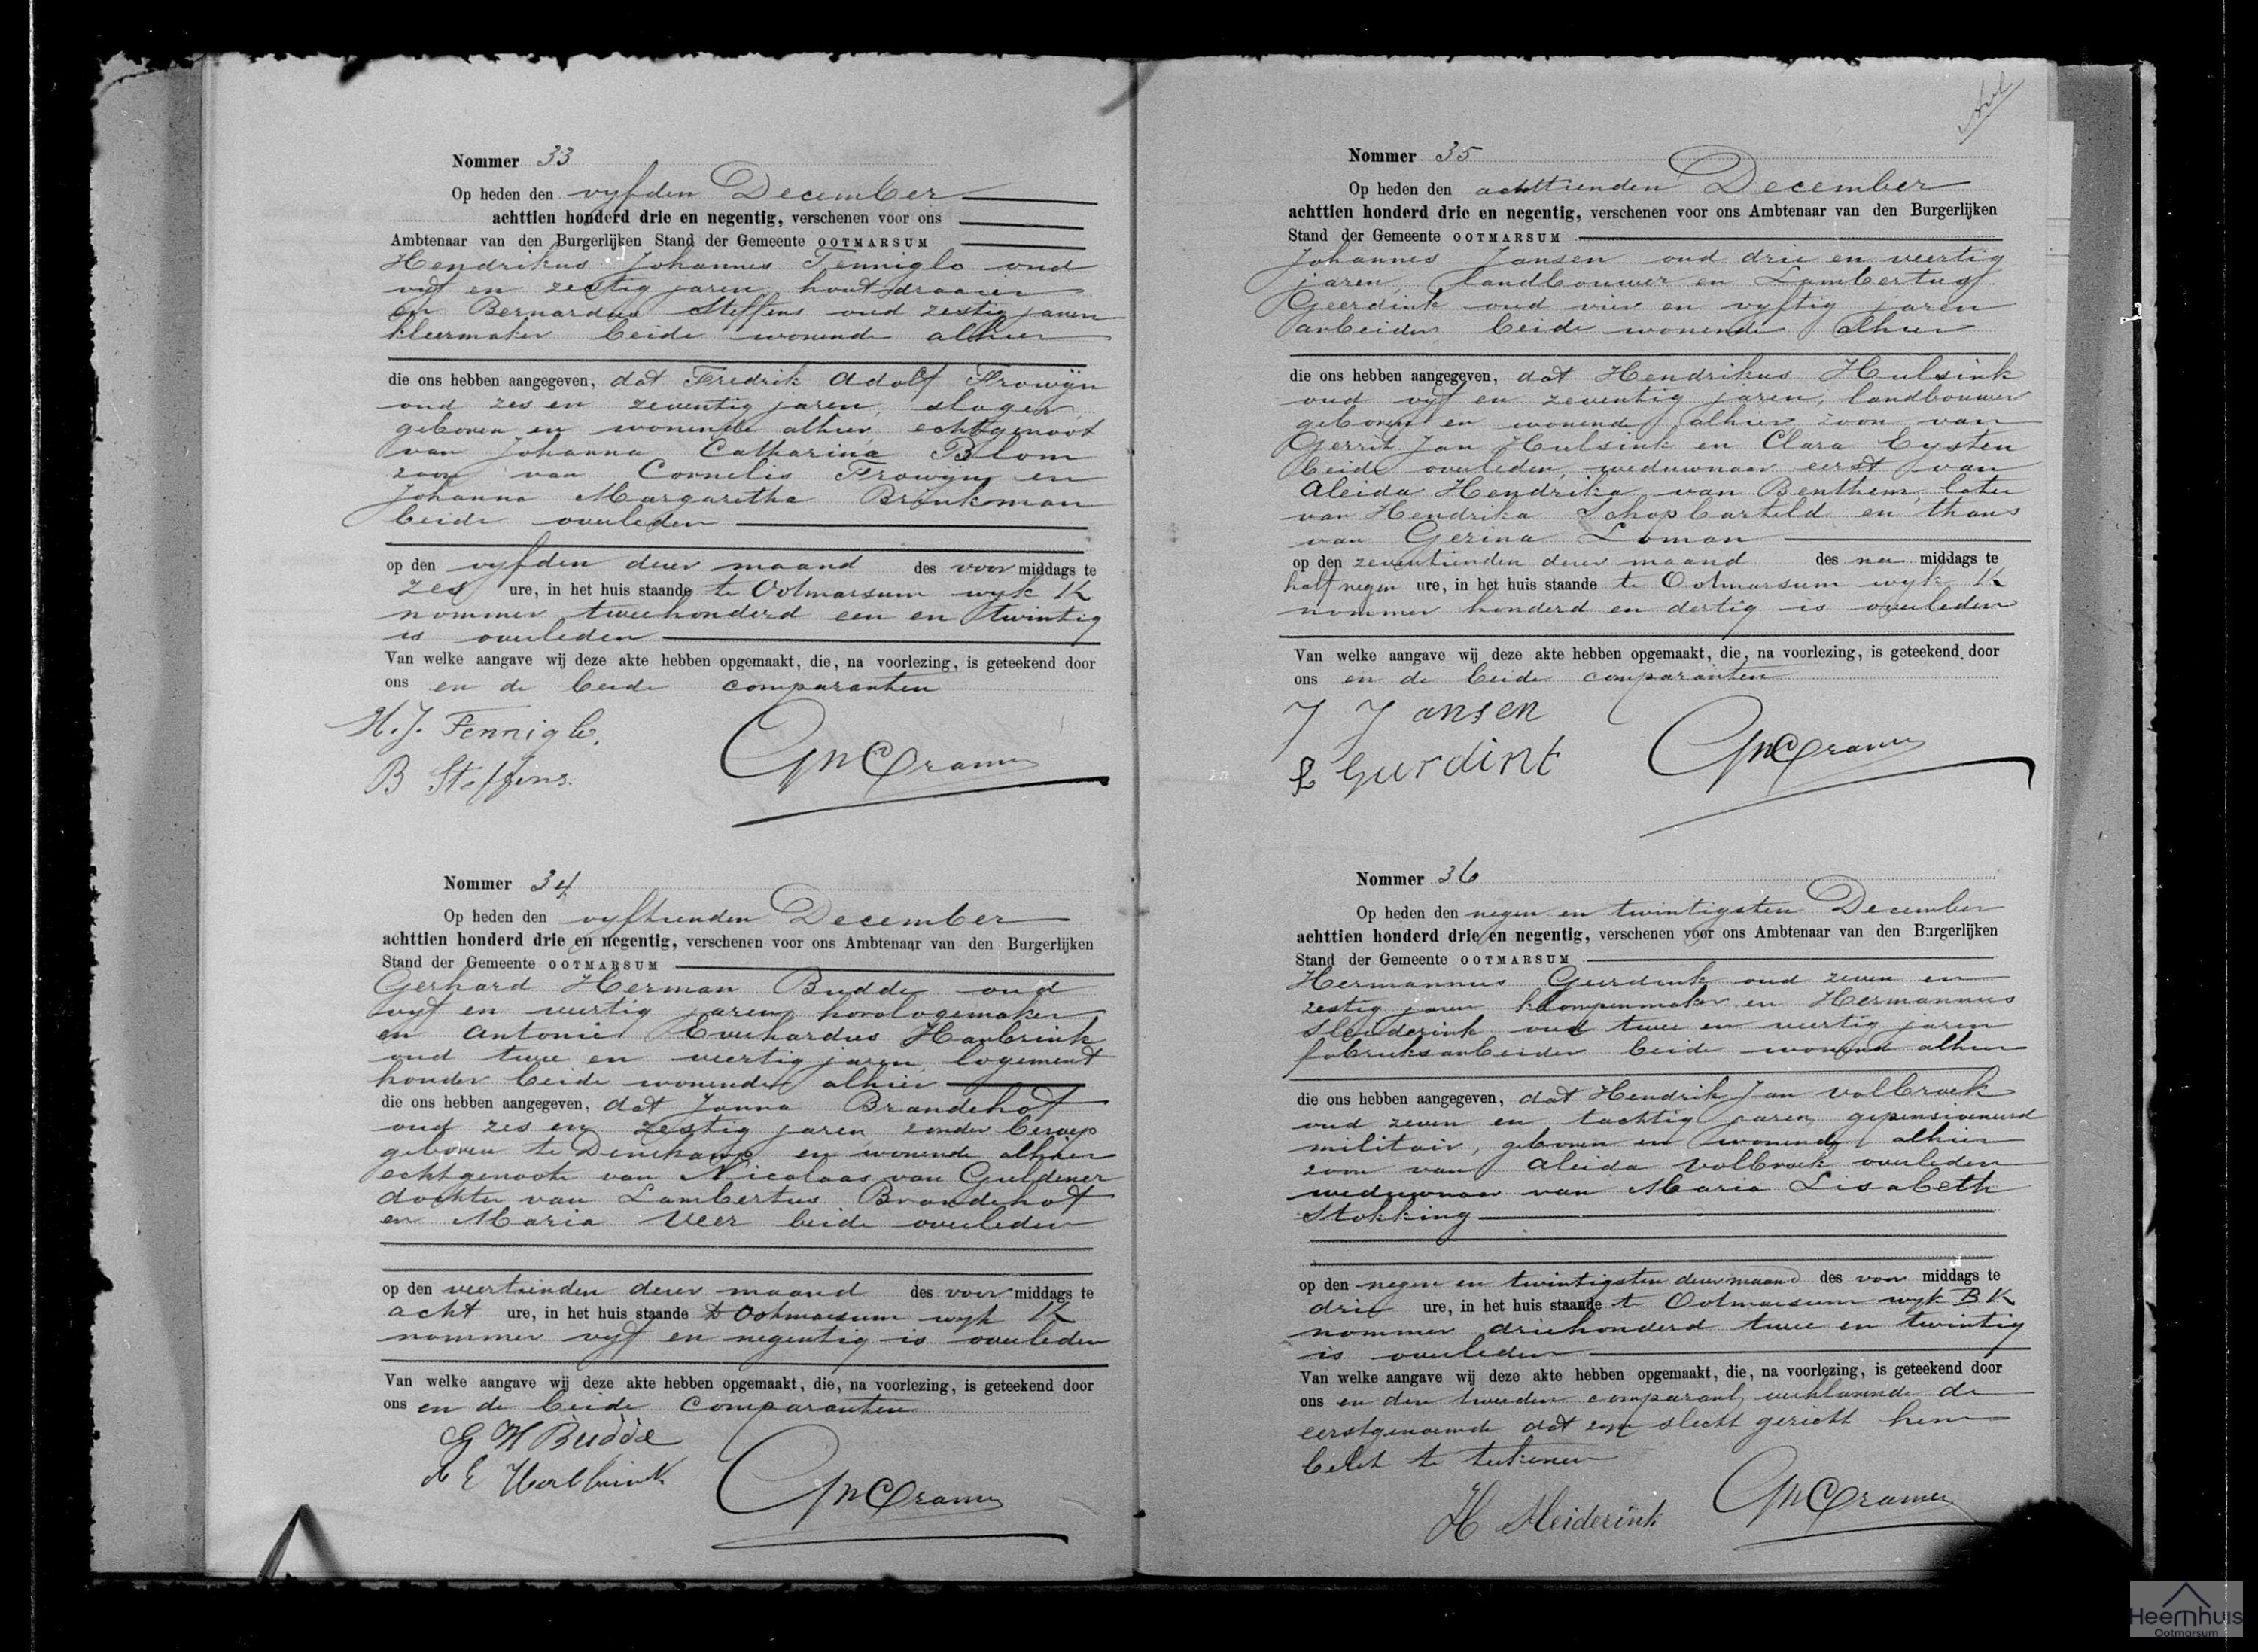 Nommer 33
Op heden den vyfden December
achttien honderd drie en negentig, verschenen voor ons
Ambtenaar van den Burgerlijken Stand der Gemeente OOTMARSUM
Hendrikus Johannes Fenniglo oud
vyf en zestig jaren houtdraaier
en Bernardus Steffens oud zestig jaren
kleermaker beide wonende alhier
die ons hebben aangegeven, dat Fredrik Adolf Frowijn
oud zes en zeventig jaren, slager
geboren en wonende alhier echtgenoot
van Johanna Catharina Blom
zoon van Cornelis Frowijn en
Johanna Margaretha Brinkman
beide overleden
op den vyfden dezer maand des voor middags te
zes ure, in het huis staande te Ootmarsum wyk K
nommer tweehonderd een en twintig
is overleden
Van welke aangave wij deze akte hebben opgemaakt, die, na voorlezing, is geteekend door
ons en de beide comparanten
H. J. Fenniglo.
B Steffens.
Cramer
Nommer 34
Op heden den vyftienden December
achttien honderd drie en negentig, verschenen voor ons Ambtenaar van den Burgerlijken
Stand der Gemeente OOTMARSUM
Gerhard Herman Budde oud
vyf en veertig jaren horologemaker
en Antonie Everhardus Harbrink
oud twee en veertig jaren, logement
houder beide wonende alhier
die ons hebben aangegeven, dat Janna Brandehof
oud zes en zestig jaren, zonder beroep
geboren te Denekamp en wonende alhier
echtgenoote van Nicolaas van Guldener
dochter van Lambertus Brandehof
en Maria Veer beide overleden
op den veertienden dezer maand des voor middags te
acht ure, in het huis staande te Ootmarsum wyk K
nommer vyf en negentig is overleden
Van welke aangave wij deze akte hebben opgemaakt, die, na voorlezing, is geteekend door
ons en de beide comparanten
G H Budde
A E Harbrink
Cramer
Nommer 35
Op heden den achttienden December
achttien honderd drie en negentig, verschenen voor ons Ambtenaar van den Burgerlijken
Stand der Gemeente OOTMARSUM
Johannes Jansen oud drie en veertig
jaren, landbouwer en Lambertus
Geerdink oud vier en vyftig jaren
arbeider beide wonende alhier
die ons hebben aangegeven, dat Hendrikus Hulsink
oud vyf en zeventig jaren, landbouwer
geboren en wonende alhier zoon van
Gerrit Jan Hulsink en Clara Eysten
beide overleden, weduwnaar eerst van
Aleida Hendrika van Benthem, later
van Hendrika Schopbarteld en thans
van Gezina Loman
op den zeventienden dezer maand des na middags te
half negen ure, in het huis staande te Ootmarsum wyk K
nommer honderd en dertig is overleden
Van welke aangave wij deze akte hebben opgemaakt, die, na voorlezing, is geteekend door
ons en de beide comparanten
J Jansen
L Gurdint
Cramer
Nommer 36
Op heden den negen en twintigsten December
achttien honderd drie en negentig, verschenen voor ons Ambtenaar van den Burgerlijken
Stand der Gemeente OOTMARSUM
Hermannus Geerdink oud zeven en
zestig jaren klompenmaker en Hermannus
Sleiderink oud twee en veertig jaren
fabrieksarbeider beide wonend alhier
die ons hebben aangegeven, dat Hendrik Jan Volbroek
oud zeven en tachtig jaren, gepensioneerd
militair, geboren en wonende alhier
zoon van Aleida Volbroek overleden
weduwnaar van Maria Lisabeth
Stokking
op den negen en twintigsten dezer maand des voor middags te
drie ure, in het huis staande te Ootmarsum wyk B K
nommer driehonderd twee en twintig
is overleden
Van welke aangave wij deze akte hebben opgemaakt, die, na voorlezing, is geteekend door
ons en den tweeden comparant, verklarende de
eerstgenoemde dat zyn slecht gezicht hem
belet te teekenen
H Sleiderink
Cramer
Heemhuis
Ootmarsum